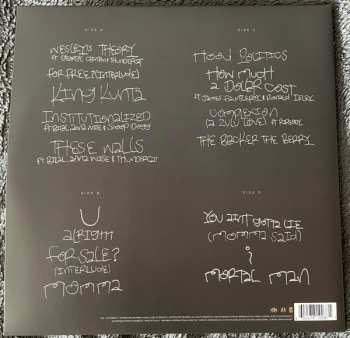 SIDE A
WESLEY'S THEORY
FT. GEORGE CLINTON & THUNDERCAT
FOR FREE? (INTERLUDE)
KING KUNTA
INSTITUTIONALIZED
FT. BILAL, ANNA WISE & SNOOP DOGG
THESE WALLS
FT. BILAL, ANNA WISE & THUNDERCAT
SIDE B
U
ALRIGHT
FOR SALE?
(INTERLUDE)
MOMMA
SIDE C
HOOD POLITICS
HOW MUCH
A DOLLAR COST
FT. JAMES FAUNTLEROY & RONALD ISLEY
COMPLEXION
(A ZULU LOVE) FT. RAPSODY
THE BLACKER THE BERRY
SIDE D
YOU AIN'T GOTTA LIE
(MOMMA SAID)
i
MORTAL MAN